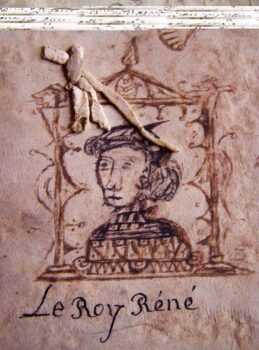 Le Roy Réné